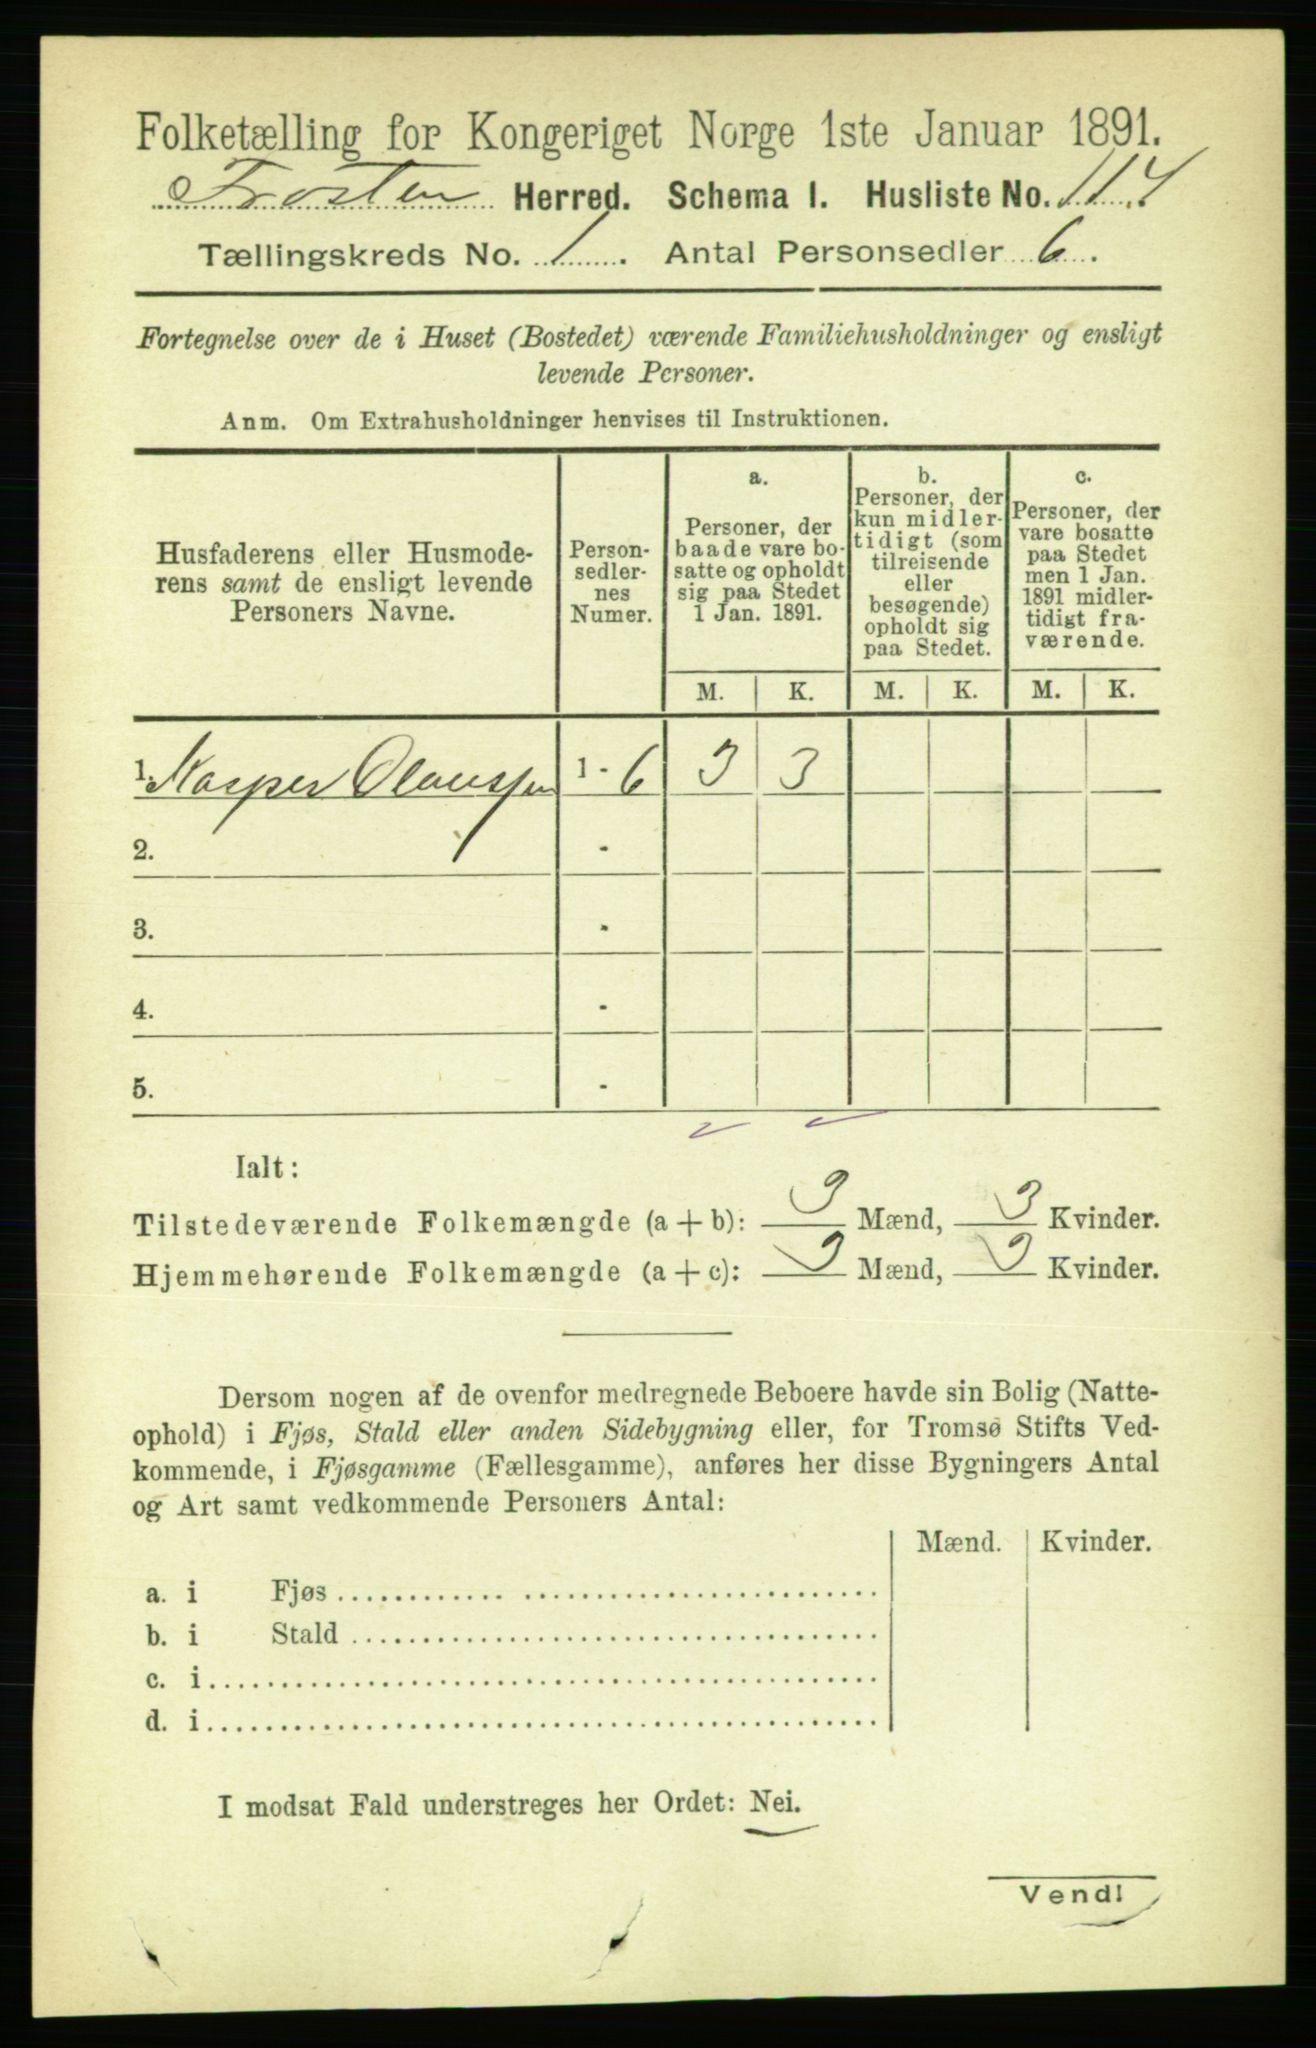 Folketælling for Kongeriget Norge 1ste Januar 1891.
Frosten Herred. Schema I. Husliste No. 114
Tællingskreds No. 1. Antal Personsedler 6.
Fortegnelse over de i Huset (Bostedet) værende Familiehusholdninger og ensligt
levende Personer.
Anm. Om Extrahusholdninger henvises til Instruktionen.
Husfaderens eller Husmode-
rens samt de ensligt levende
Personers Navne.
Person-
sedler-
nes
Numer.
a.
Personer, der
baade vare bo-
satte og opholdt
sig paa Stedet
1 Jan. 1891.
b.
Personer, der
kun midler-
tidigt (som
tilreisende
eller
besøgende)
opholdt sig
paa Stedet.
c.
Personer, der
vare bosatte
paa Stedet
men 1 Jan.
1891 midler-
tidigt fra-
værende.
M. K. M. K. M. K.
1. Kasper Olaussen 1 - 6 3 3
2. -
3. -
4. -
5. -
Ialt:
Tilstedeværende Folkemængde (a + b): 3 Mænd, 3 Kvinder.
Hjemmehørende Folkemængde (a + c): 3 Mænd, 3 Kvinder.
Dersom nogen af de ovenfor medregnede Beboere havde sin Bolig (Natte-
ophold) i Fjøs, Stald eller anden Sidebygning eller, for Tromsø Stifts Ved-
kommende, i Fjøsgamme (Fællesgamme), anføres her disse Bygningers Antal
og Art samt vedkommende Personers Antal:
Mænd. Kvinder.
a. i Fjøs
b. i Stald
c. i
d. i
I modsat Fald understreges her Ordet: Nei.
Vend!